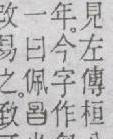 見左傳桓
年。今字作
一曰佩
改易之。致